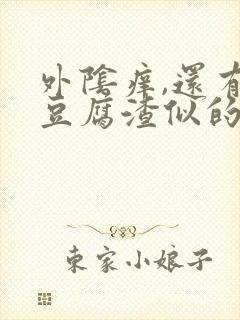 外陰痒,還有
豆腐渣似的
東家小娘子